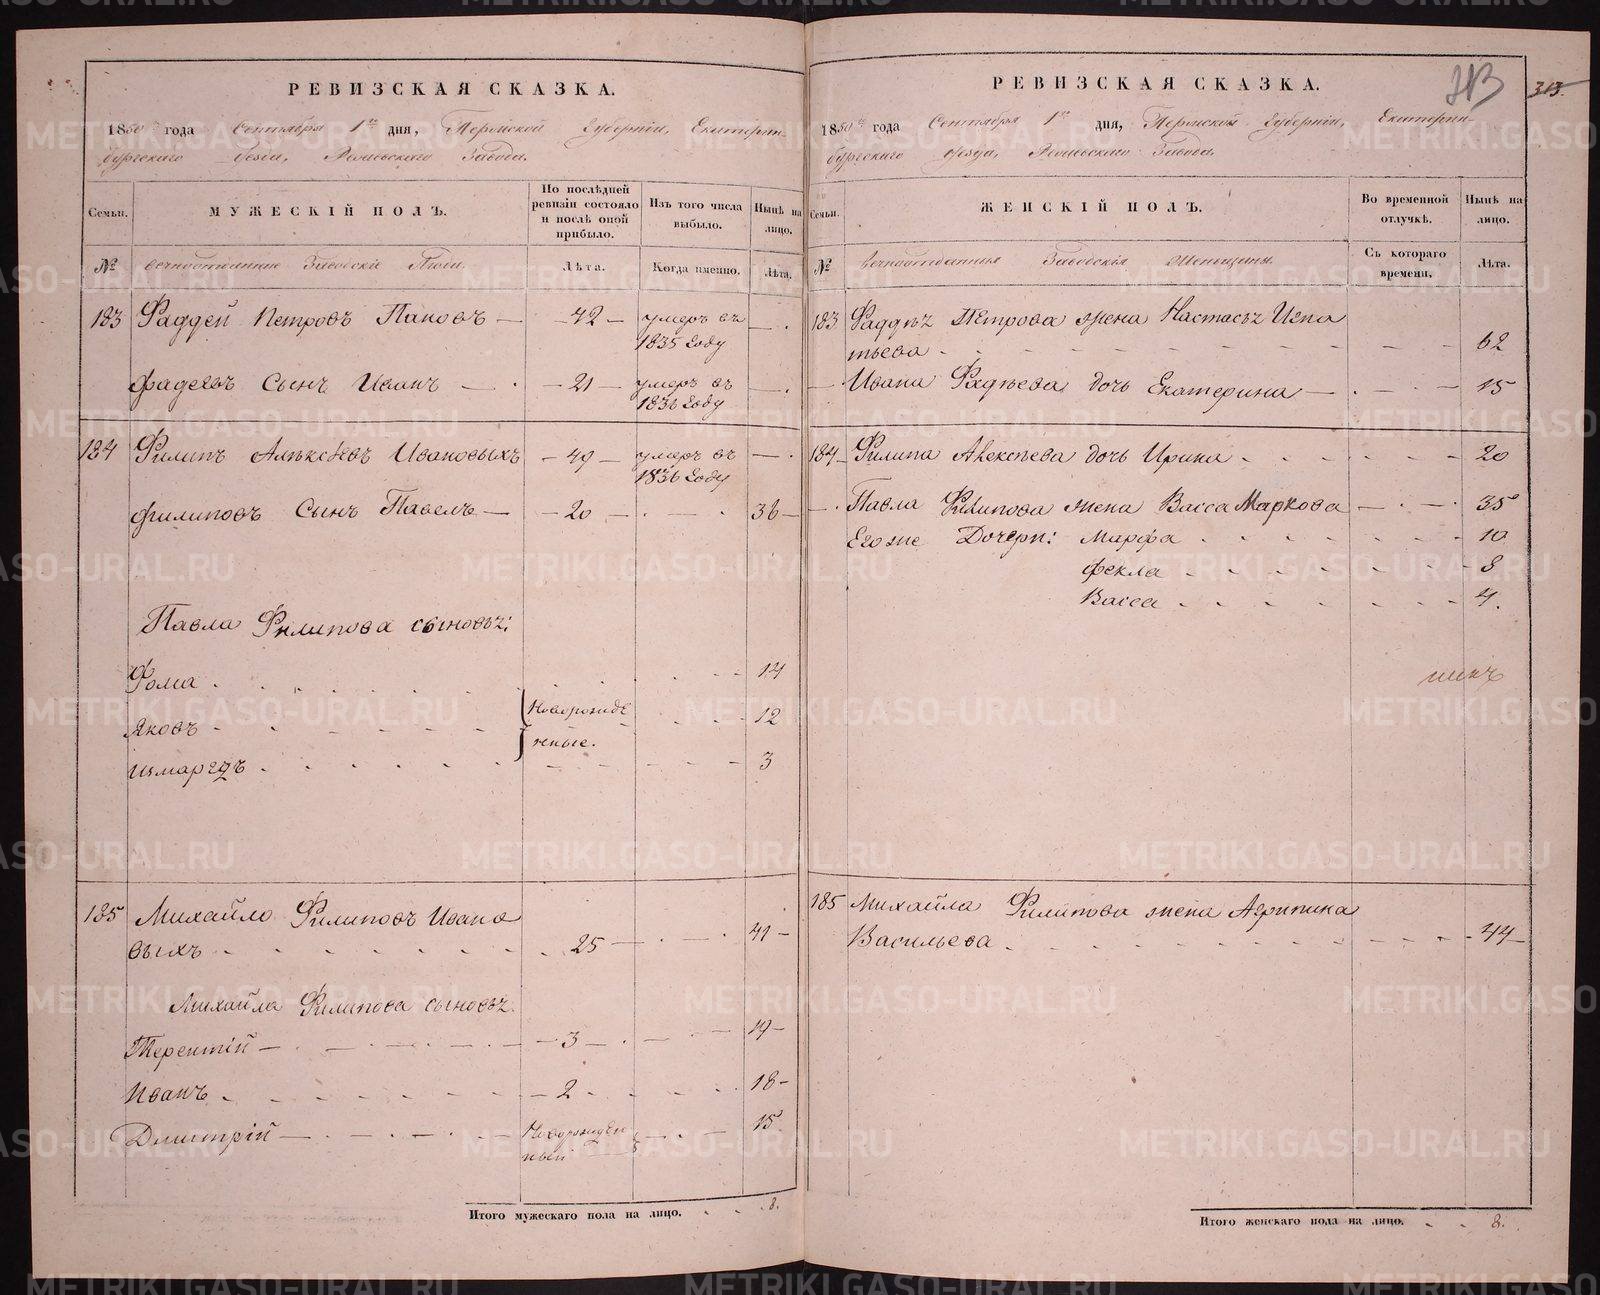 РЕВИЗСКАЯ СКАЗКА.
1850 года Сентября 1го дня, Пермской Губерніи, Екатерин-
бургскаго Уезда, Завода.
Семьи.
МУЖЕСКІЙ ПОЛЪ.
По послѣдней ревизіи состояло и послѣ оной прибыло.
Изъ того числа выбыло.
Нынѣ на лицо.
№
вечноотданные Заводскіе Люди.
Лѣта.
Когда именно.
Лѣта.
183 Фаддей Петровъ Пановъ — 42 — умеръ въ
1835 Году
Фадеевъ Сынъ Иванъ — 21 — умеръ въ
1836 Году
184 Филипъ Алѣксѣевъ Ивановыхъ — 49 — умеръ въ
1836 Году
Филиповъ Сынъ Павелъ — 20 — 36 —
Павла Филипова сыновьи:
Фома 14
Новорожде
Яковъ 12
нные.
Измаргдъ 3
185 Михайло Филиповъ Ивано
выхъ 25 — 41 —
Михайла Филипова сыновьи
Терентій — 3 — 19 —
Иванъ — 2 18 —
Дмитрій — Новорожден 15
ный
Итого мужескаго пола на лицо. 8.
РЕВИЗСКАЯ СКАЗКА.
313
313.
1850 года Сентября 1го дня, Пермской Губерніи, Екатерин-
бургскаго Уезда, Завода.
Семьи.
ЖЕНСКІЙ ПОЛЪ.
Во временной отлучкѣ.
Нынѣ на лицо.
№
вечноотданныя Заводскія Женщины.
Съ котораго времени.
Лѣта.
183 Фаддѣя Петрова жена Настасья Игна
тьева 62
Ивана Фадѣева дочь Екатерина — 15
184 Филипа Алексѣева дочь Ирина 20
Павла Филипова жена Васса Маркова — 35
Его же Дочери: Марфа 10
Фекла 8
Васса 4.
185 Михайла Филипова жена Агрипина
Васильева 44
Итого женскаго пола на лицо. 8.
METRIKI.GASO-URAL.RU